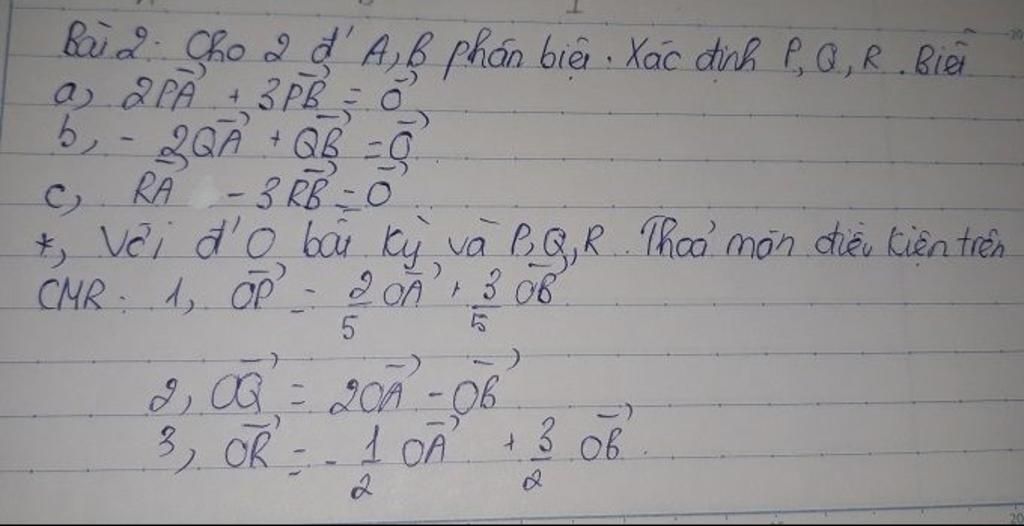 Bài 2: Cho 2 đ' A, B phân biệt. Xác định P, Q, R. Biết
a, 2PA⃗ + 3PB⃗ = 0⃗
b, - 2QA⃗ + QB⃗ = 0⃗
c, RA⃗ - 3RB⃗ = 0⃗
*, Với đ' O bất kỳ và P, Q, R. Thoả mãn điều kiện trên
CMR: 1, OP⃗ = 2/5 OA⃗ + 3/5 OB⃗
2, OQ⃗ = 2OA⃗ - OB⃗
3, OR⃗ = - 1/2 OA⃗ + 3/2 OB⃗.